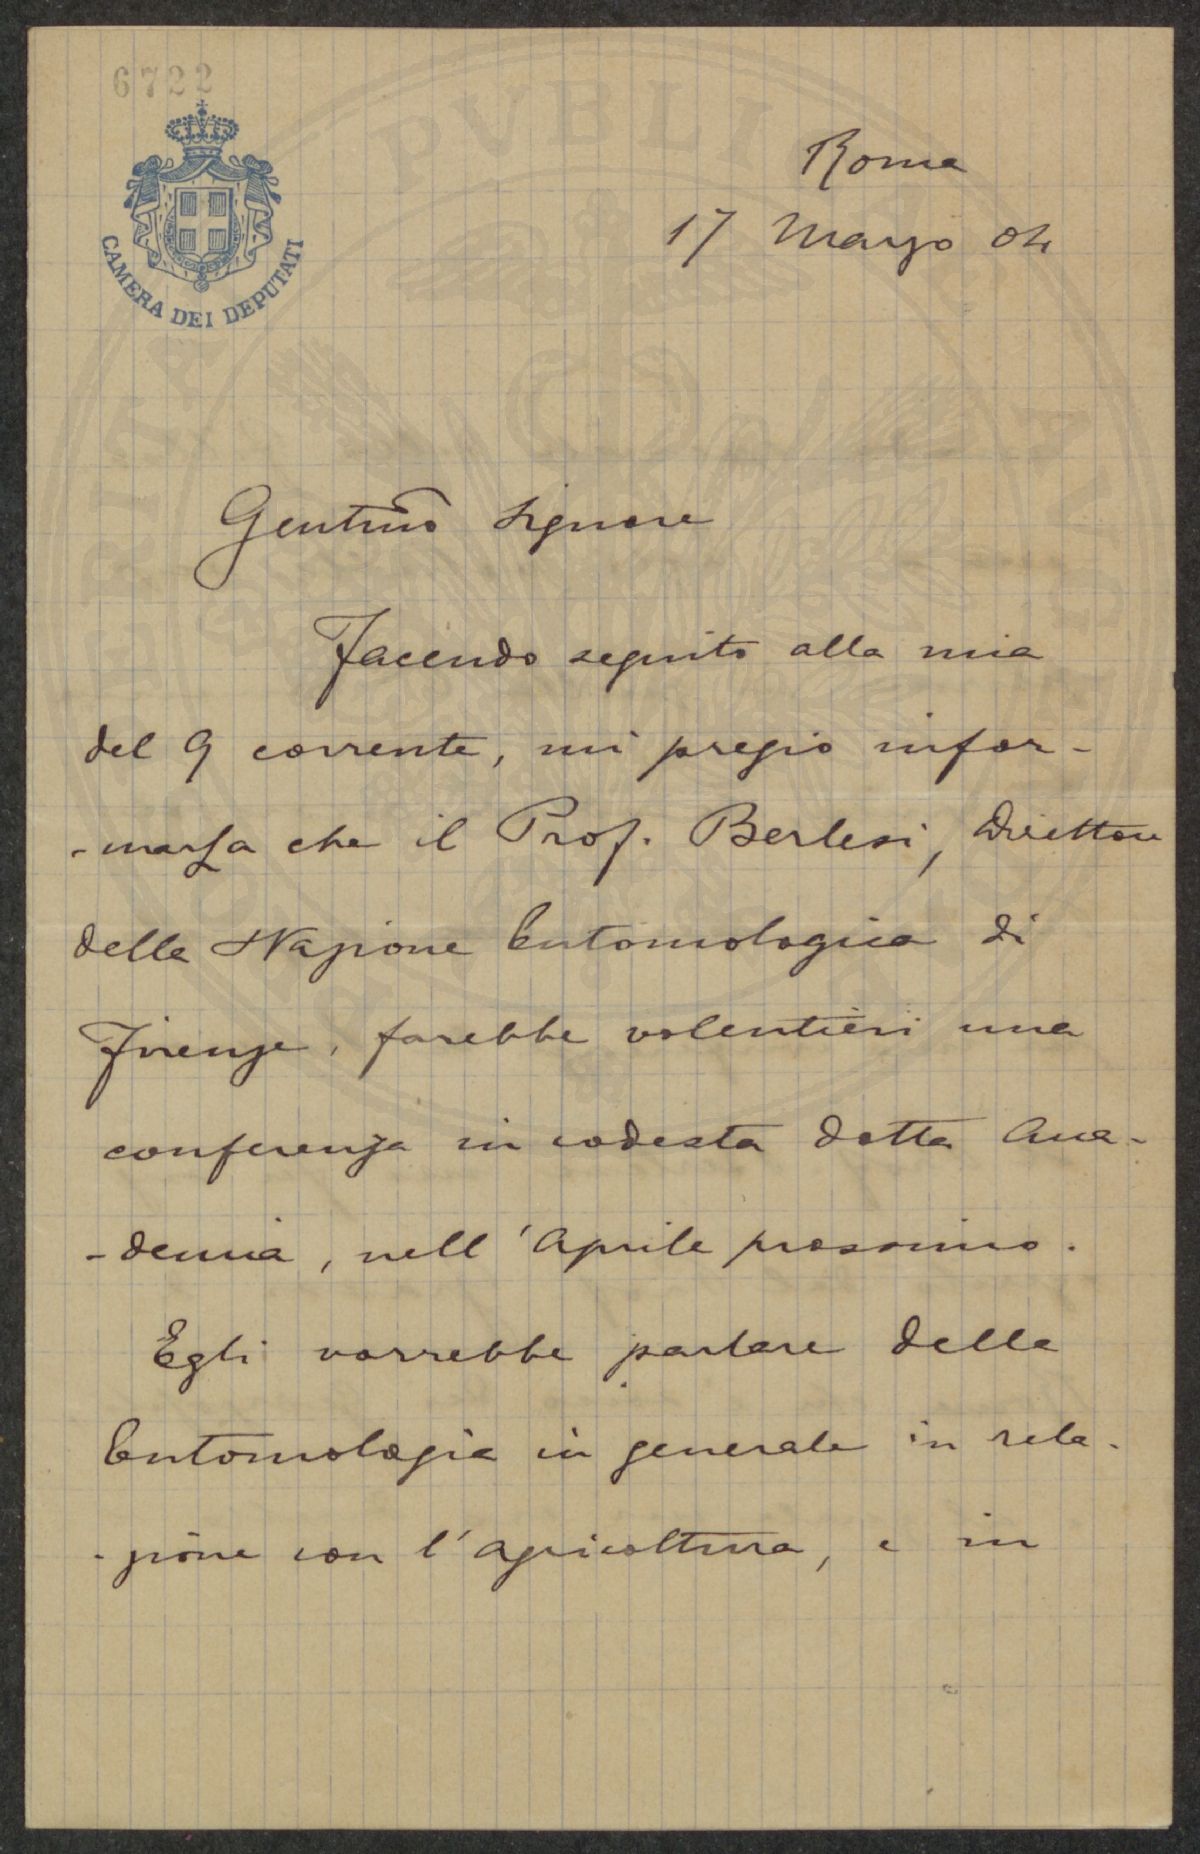 6722
CAMERA DEI DEPUTATI
Roma
17 Marzo 04
Gentmo Signore
Facendo seguito alla mia
del 9 corrente, mi pregio infor-
-marLa che il Prof. Berlesi, Direttore
della Stazione Entomologica di
Firenze, farebbe volentieri una
conferenza in codesta dotta Acca-
-demia, nell'Aprile prossimo.
Egli vorrebbe parlare della
Entomologia in generale in rela-
-zione con l'agricoltura, e in